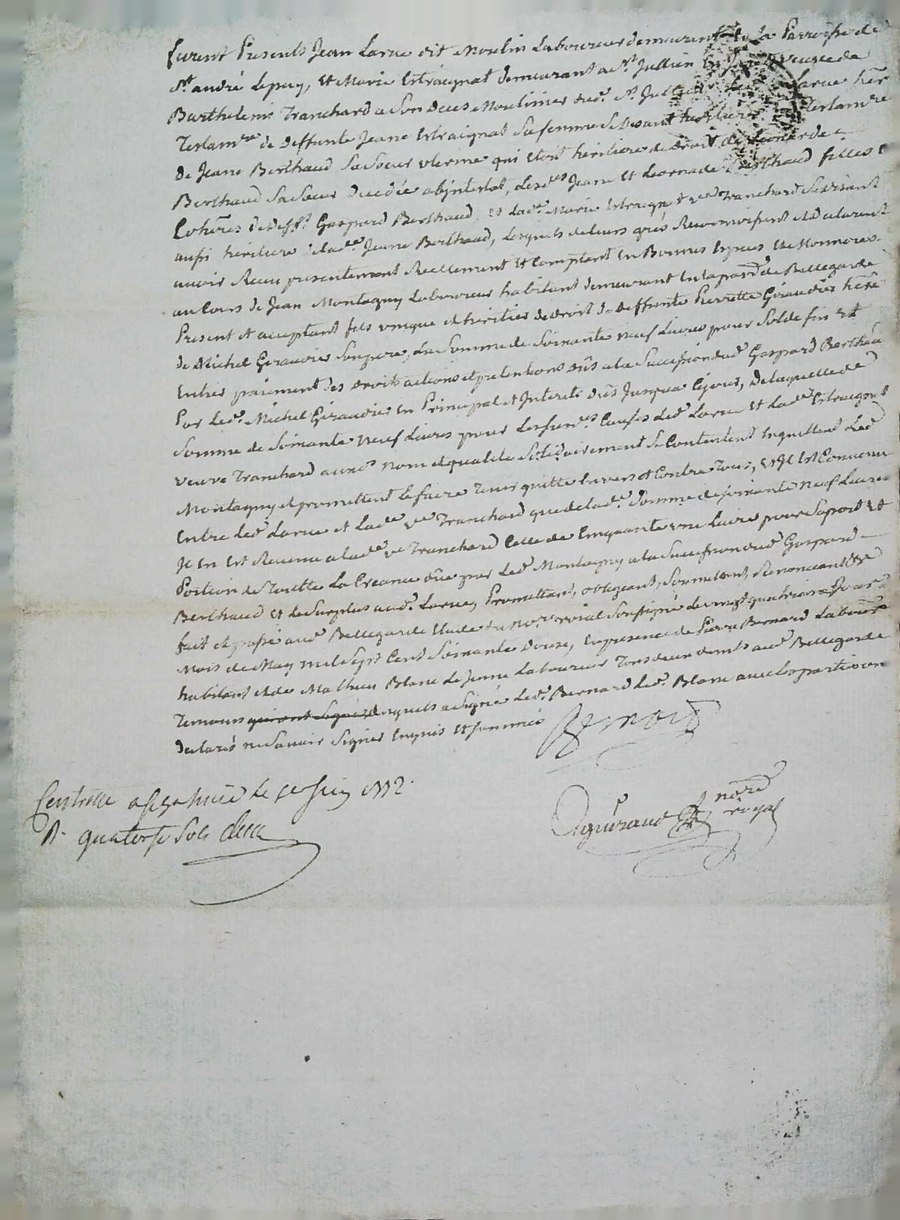 furent Presents Jean Larue dit Moulin Laboureur demeurant la Parroisse de
St. andré Lepuy, Et Marie Extraignat demeurant a St. Jullien veuve de
Barthelemi Tranchard a Son deces Moulinier aud. St. Jul Larue hér
Testamre de deffunte Jeane Extraignat Sa femme Sedisant testamre
de Jeane Berthaud Sa Soeur uterine qui étoit heritiere de Droit de Leonarde
Berthaud Sa Soeur Decedée abjntestat, Lesd. Jeane Et Leonarde Berthaud filles Et
Cohéres de deff. Gaspard Berthaud, Et lade. Marie Extraignat ve. Tranchard Sedisant
aussi heritiere de lade. Jeane Berthaud, Lesquels de leurs grés Reconnoissent Et declarent
avoir Reçu presentement Reellement Et Comptant En Bonnes Espèces Et Monnoies
au Cours de Jean Montagny Laboureur habitant demeurant En la parse. de Bellegarde
Present Et acceptant fils unique Et heritier de droit de deffunte Pierrette Giraudier here.
de Michel Giraudier Son pere, La Somme de Soixante neuf Livres pour Solde fin Et
Entier paiement des droits actions Et pretentions dûs a la Succession dud. Gaspard Berthaud
Par led. Michel Giraudier En Principal Et Interets dûs Jusqua Cejour, De laquelle de.
Somme de Soixante neuf Livres pour Les susd. Causes Led. Larue Et lade. Extraignat
veuve Tranchard aux nom Et qualité Solidairement Se Contentent Enquittent Led.
Montagny Et promettent le faire Tenir quitte Envers Et Contre Tous, Et Il Est Convenu
Entre Led. Larue et lade. ve. Tranchard que de lade. Somme de Soixante neuf Livres
Il En Est Revenu a lade. ve. Tranchard Celle de Cinquante une Livre pour Sapart Et
Portion de Toutte La Creance dûe par Led. Montagny a la Succession dud. Gaspard
Berthaud Et le Surplus aud. Larue, Promettant, obligeant, Soumettant, Renonceant &c
fait Et passé aud. Bellegarde Etude du nore. royal Soussigné le vingt quatrieme Jour
Mois de May mil Sept Cent Soixante Douze, En presence de Pierre Bernard Laboureur
habitant Et de Mathieu Blanc le Jeune Laboureur Tous deux demts. aud. Bellegarde
Temoins qui ont Signé Enquels a Signé Led. Bernard Led. Blanc avec Les parties ont
declarés ne Savoir Signer Enquis Et Sommés
Bernard
Controllé a le Juin 1772.
R. quatorze Sols
nore
royal